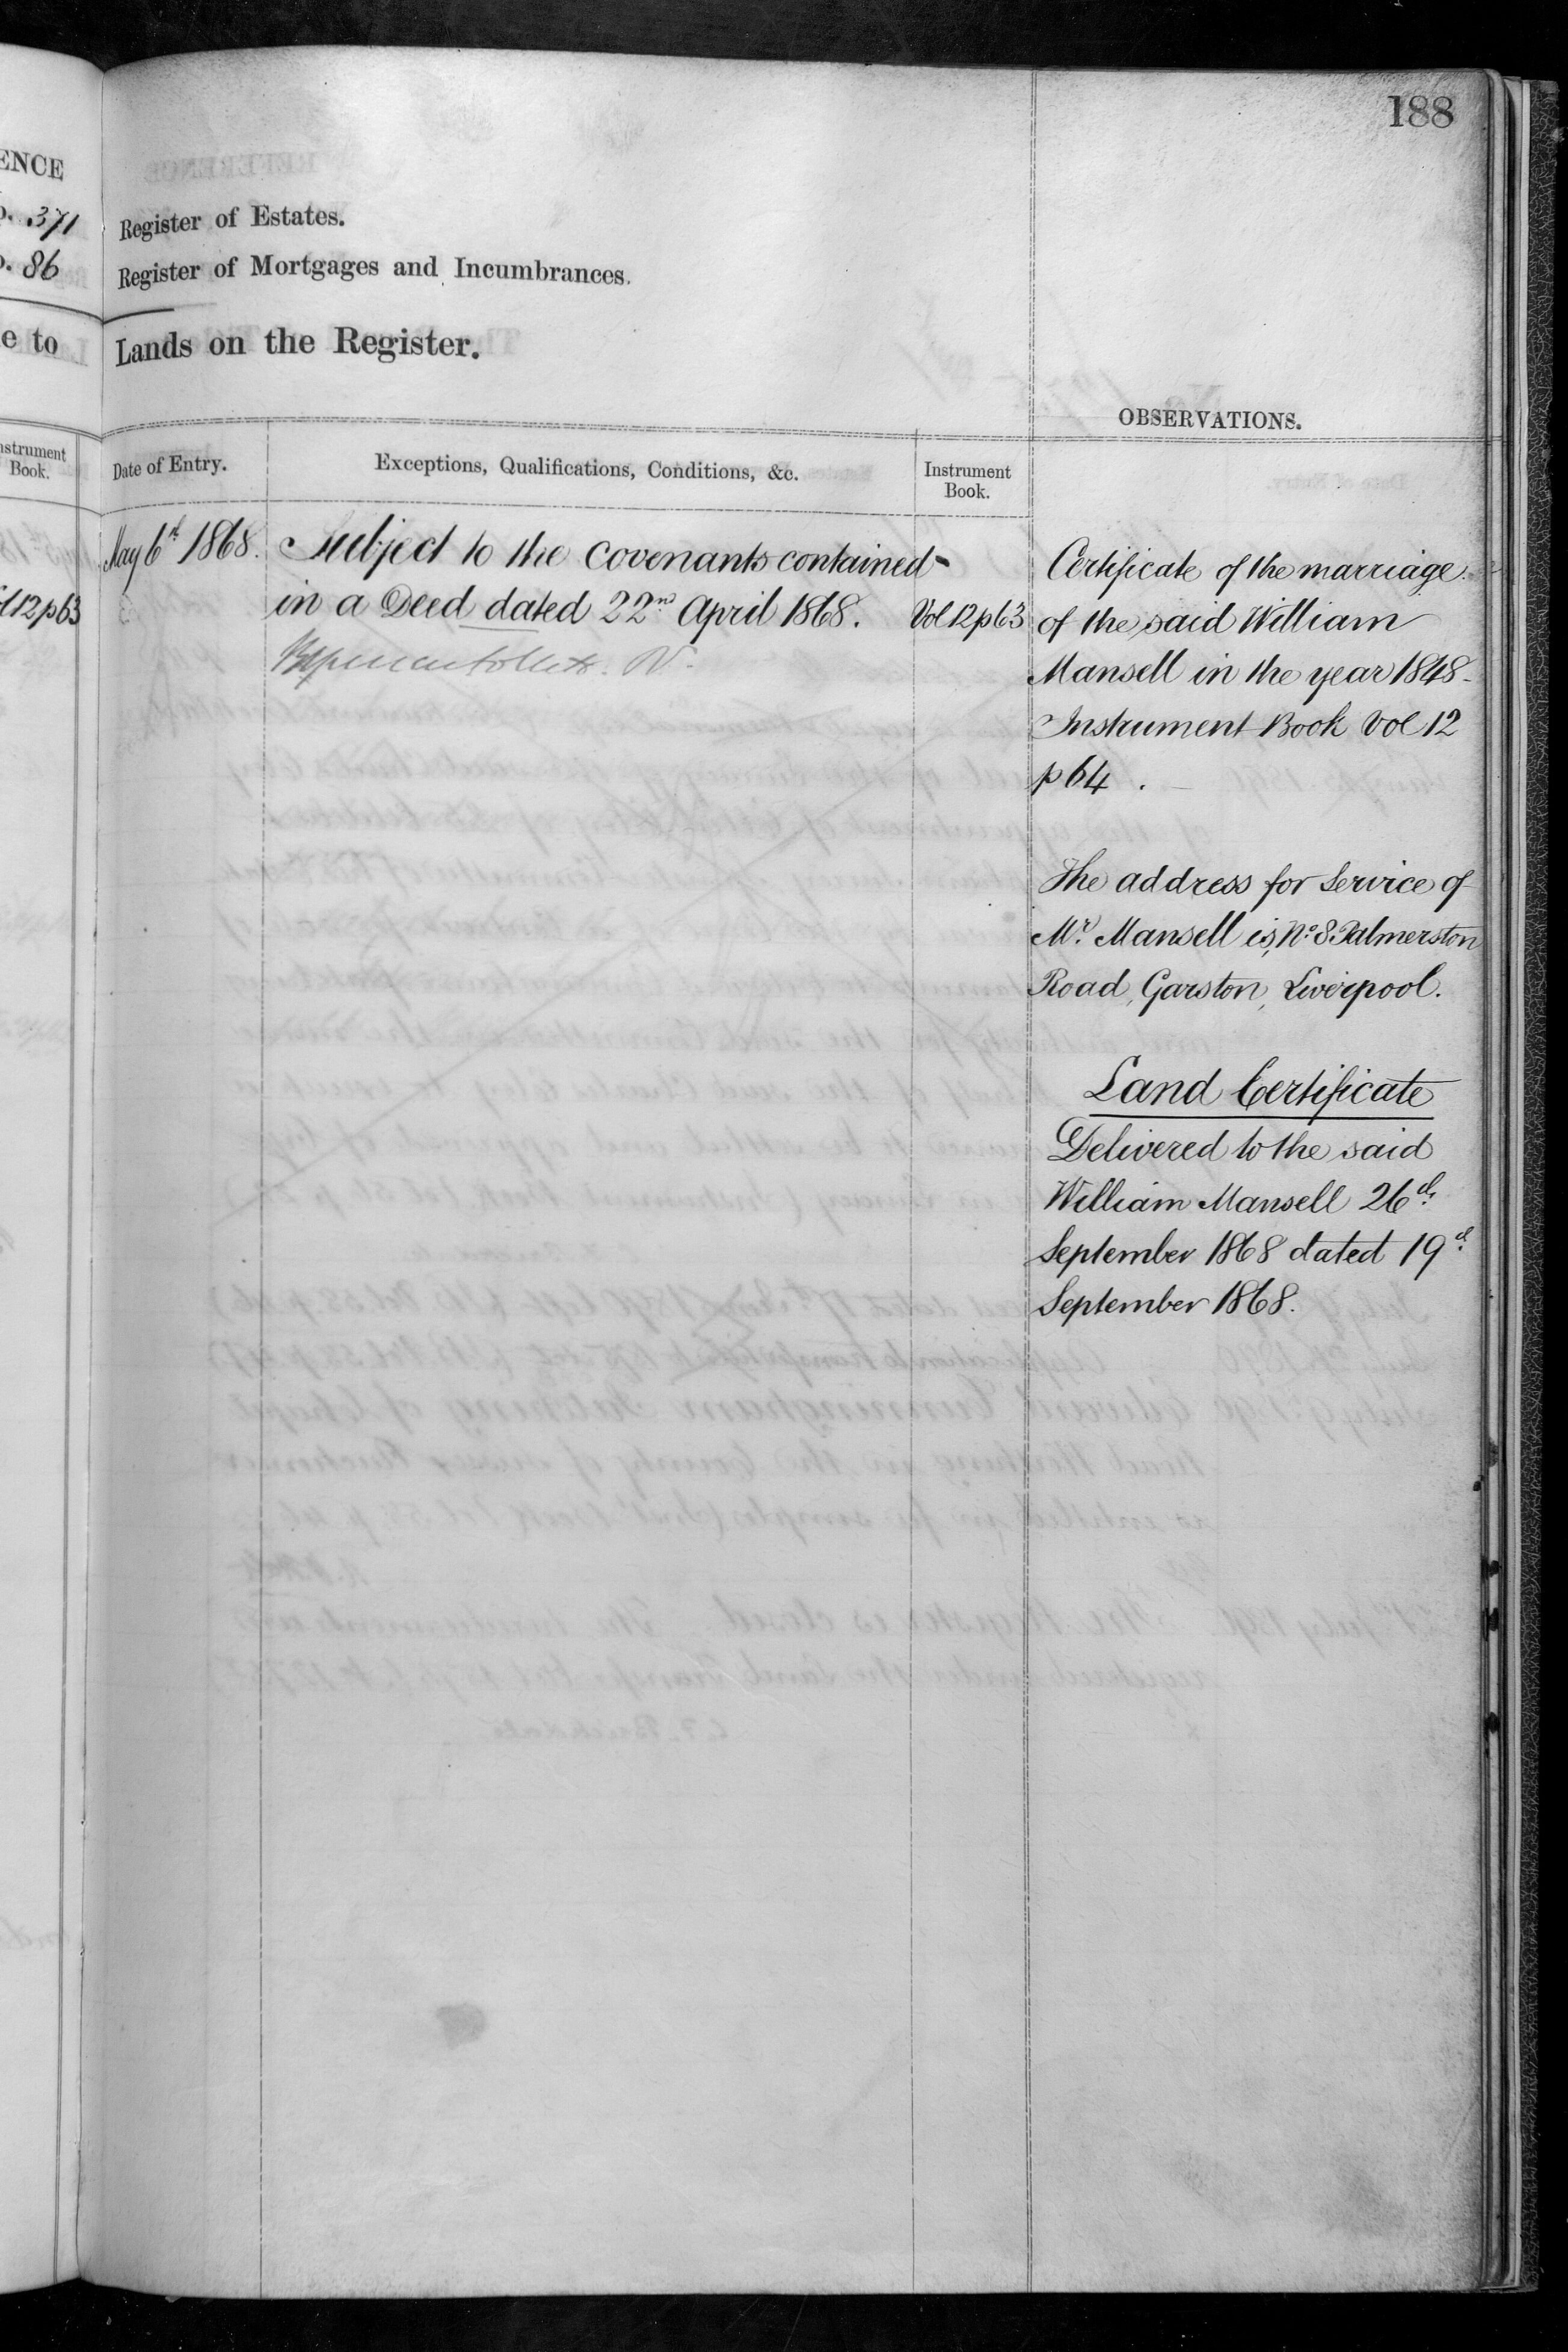 188
ENCE
371
86
e to
Instrument
Book.
12p63
Register of Estates.
Register of Mortgages and Incumbrances.
Lands on the Register.
Date of Entry.
Exceptions, Qualifications, Conditions, &c.
Instrument
Book.
May 6th 1868.
Subject to the covenants contained
in a Deed dated 22nd April 1868.
Vol 12 p 63
OBSERVATIONS.
Certificate of the marriage
of the said William
Mansell in the year 1848
Instrument Book Vol 12
p 64.
The address for Service of
Mr. Mansell is, No. 8 Palmerston
Road, Garston, Liverpool.
Land Certificate
Delivered to the said
William Mansell 26th
September 1868 dated 19th
September 1868.